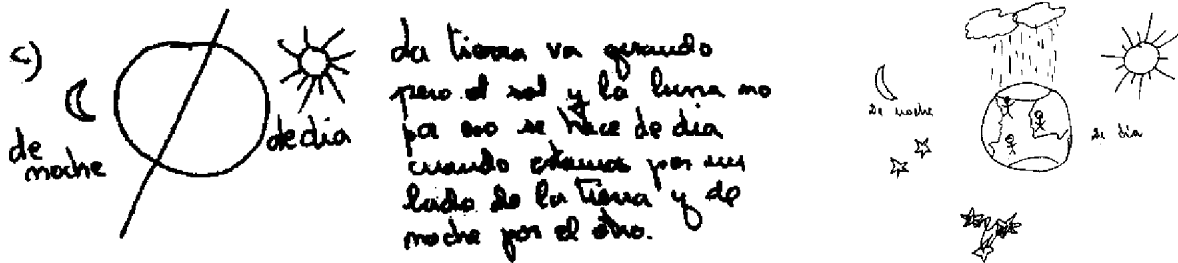 c)
de
noche
de dia
La tierra va girando
pero el sol y la luna no
por eso se hace de dia
cuando estamos por un
lado de la tierra y de
noche por el otro.
de noche
de dia